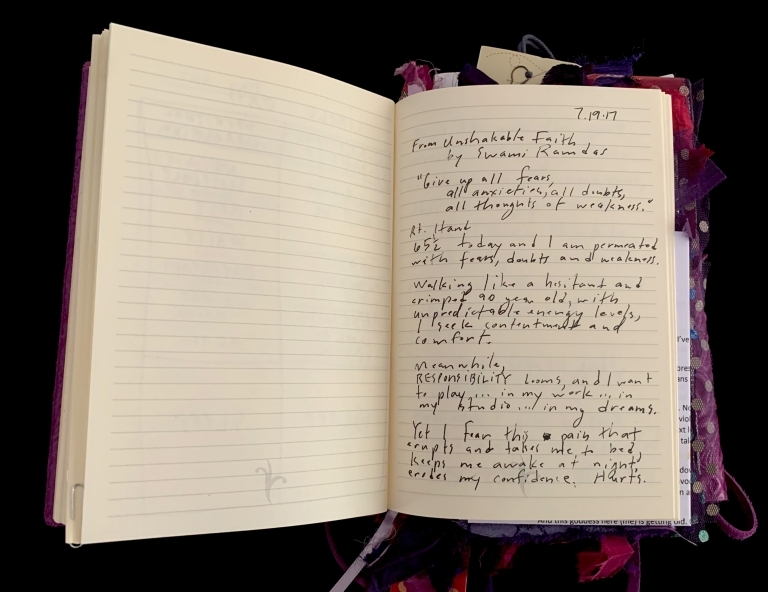 7.19.17
From Unshakable Faith
by Swami Ramdas
"Give up all fears,
all anxieties, all doubts,
all thoughts of weakness."
Rt. Hand
65½ today and I am permeated
with fears, doubts and weakness.
Walking like a hesitant and
crimped 90 year old, with
unpredictable energy levels,
I seek contentment and
comfort.
Meanwhile,
RESPONSIBILITY looms, and I want
to play... in my work... in
my studio... in my dreams.
Yet I fear this pain that
erupts and takes me to bed,
keeps me awake at night,
erodes my confidence. Hurts.
I've
ans
No
And this goddess here (me) is getting old.